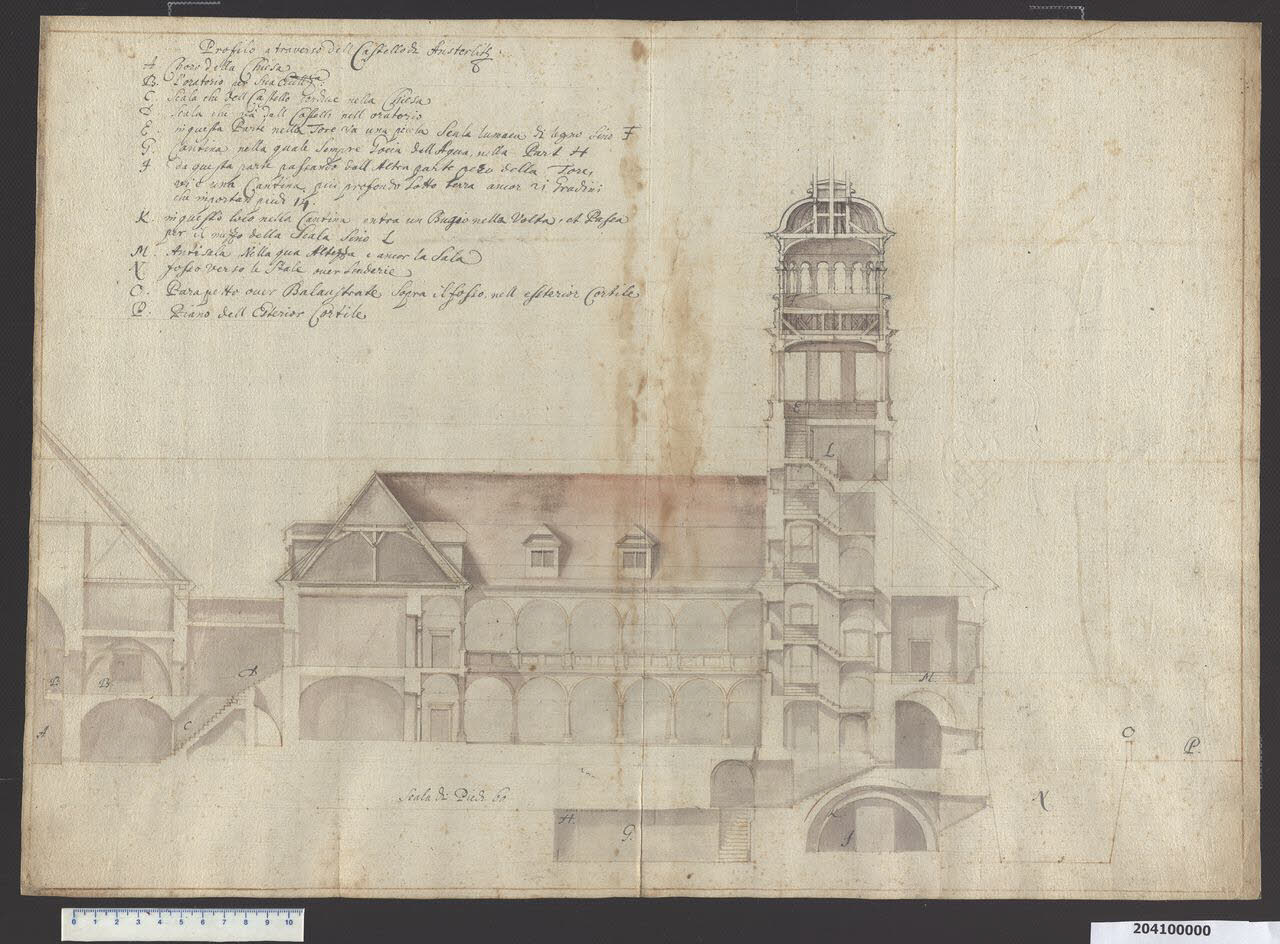 Profilo a traverso dell Castello di Austerlitz
A Choro della Chiesa
B. l'oratorio per Sua
C. Scala che dell Castello conduce nella Chiesa
D. Scala che va dall Castello nell oratorio
E. in questa Parte nella Tore va una picola Scala lumaca di legno sino F
G. Cantina nella quale sempre Gocia dell Aqua, nella Part H
J da questa parte passando dall Altra parte della Tore,
vi è una Cantina più profondo sotto terra ancor 21 Gradini
che importan piedi 14.
K in questo loco nella Cantina entra un Bugio nella Volta, et Passa
per il mezo della Scala sino L
M. Antisala Nella qua Altezza e ancor la Sala
N fosso verso le Stale over
O. Parapetto over Balaustrate Sopra il fosso, nell essterior Cortile
P. Piano dell Esterior Cortile
E
L
D
B
B
M
C
A
O
P.
Scala di Piedi 60
N
H.
G.
K
J
0 1 2 3 4 5 6 7 8 9 10
204100000